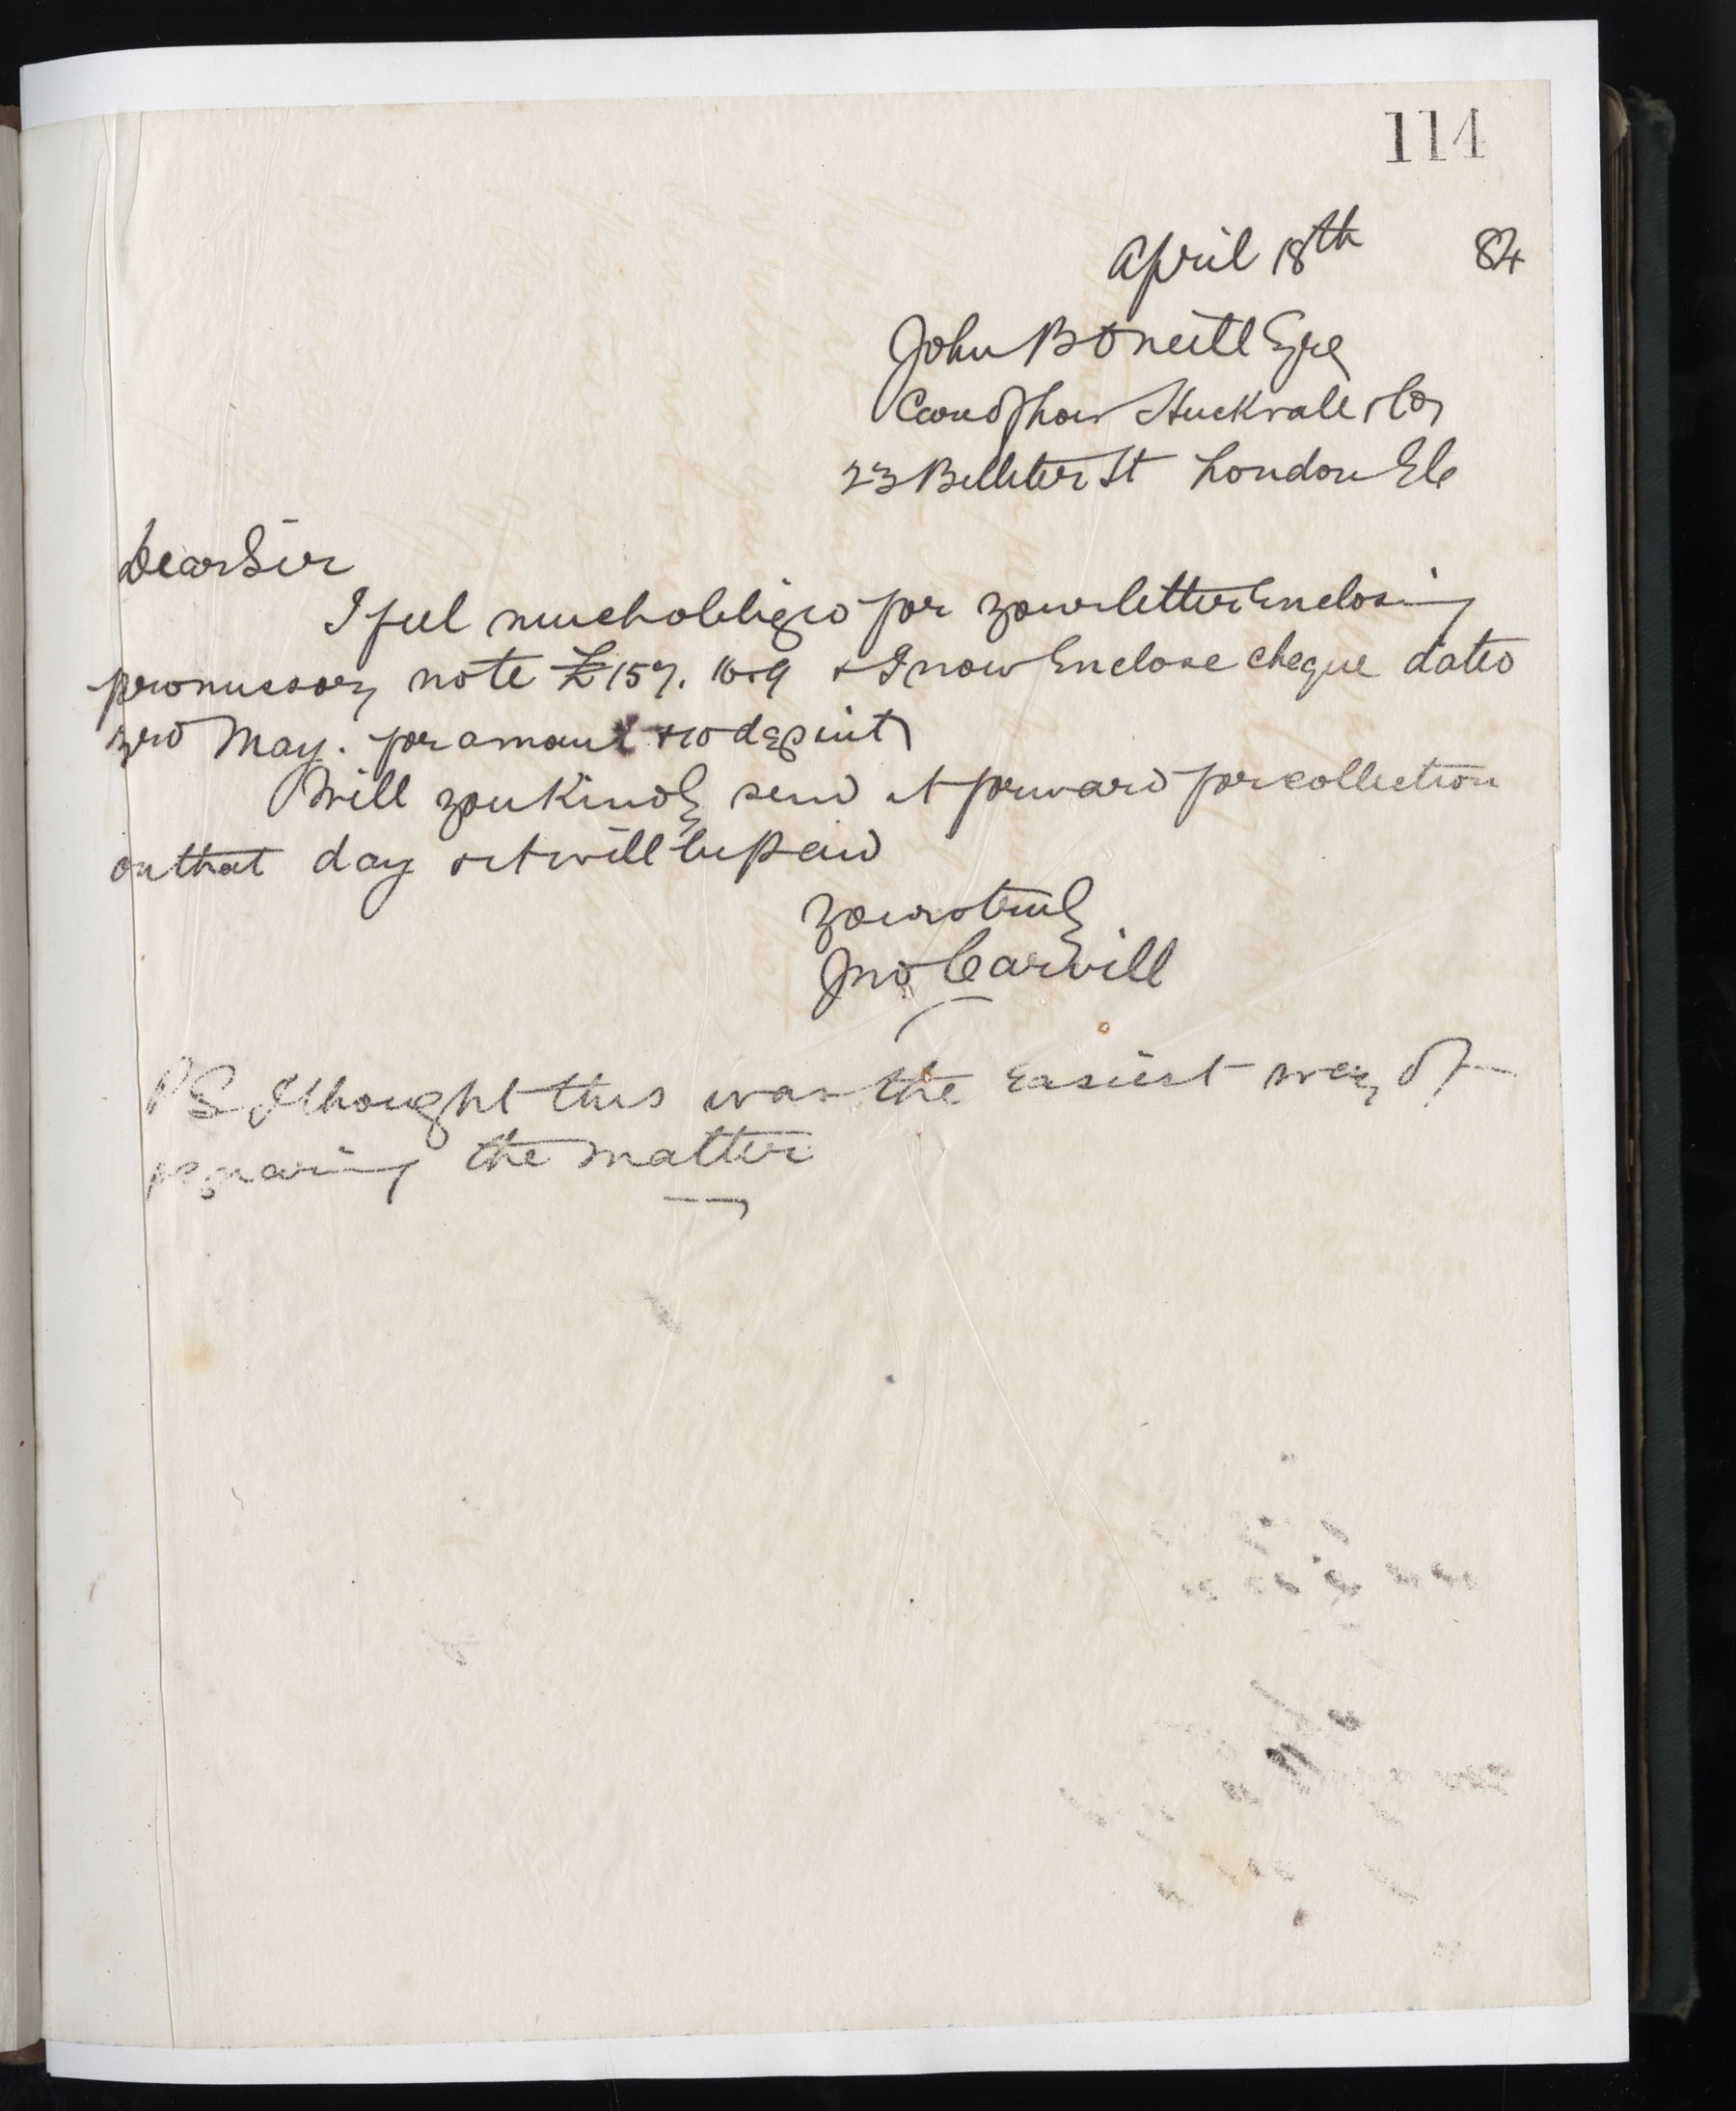 114
April 18th 84
John B O'Neill Esqre
Care of Thos Huckvale & Co
23 Billiter St London EC
Dear Sir
I feel much obliged for your letter Enclosing
promissory note £157. 16. 9 & I now Enclose cheque dated
3rd May. for amount
Will you Kindly send it forward for collection
on that day & it will be paid
Yours truly
Jno Carvill
PS I thought this was the Easiest way of
squaring the matter